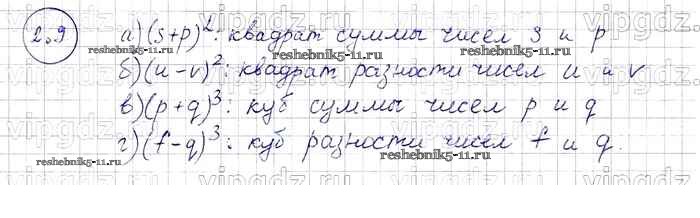 2.9 а) (s+p)²: квадрат суммы чисел s и p
б) (u-v)²: квадрат разности чисел u и v
в) (p+q)³: куб суммы чисел p и q
г) (f-q)³: куб разности чисел f и q.
vipgdz
reshebnik5-11.ru
reshebnik5-11.ru
reshebnik5-11.ru
reshebnik5-11.ru
reshebnik5-11.ru